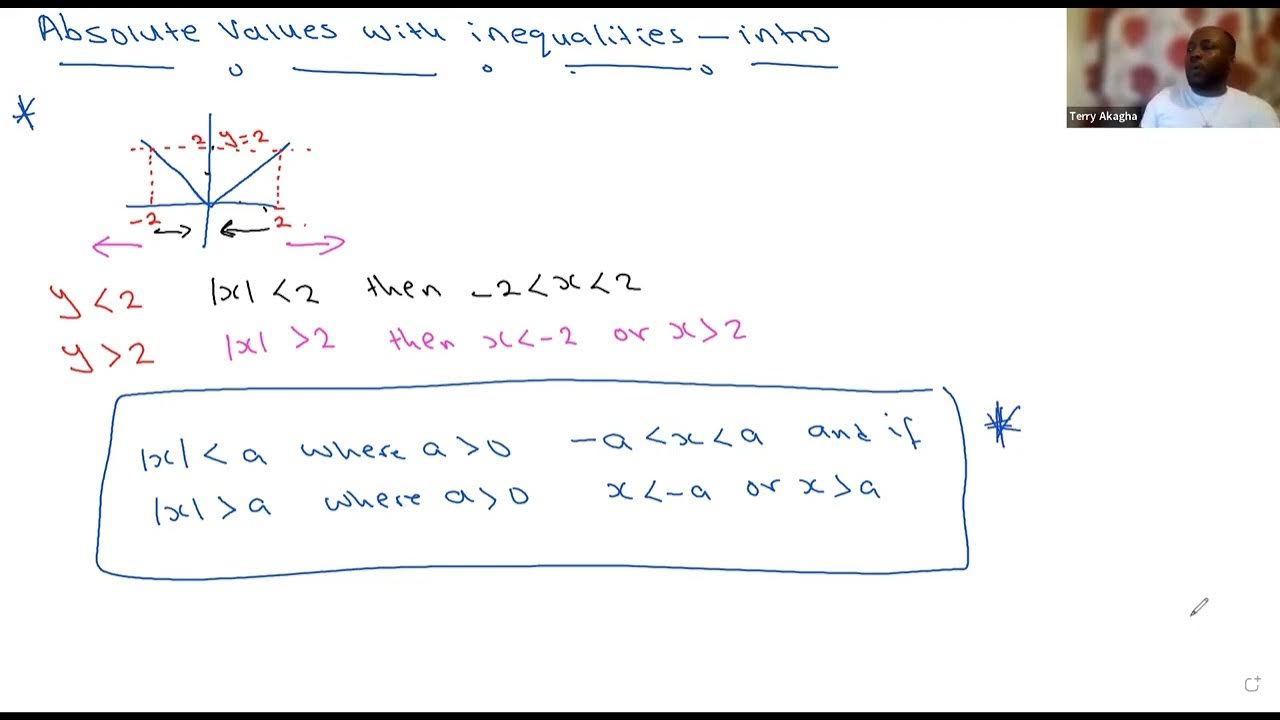 Absolute Values with inequalities – intro
Terry Akagha
*
2 y=2
-2 2
y<2 |x| <2 then -2<x<2
y>2 |x| >2 then x<-2 or x>2
|x| < a where a>0 -a<x<a and if *
|x| > a where a>0 x<-a or x>a